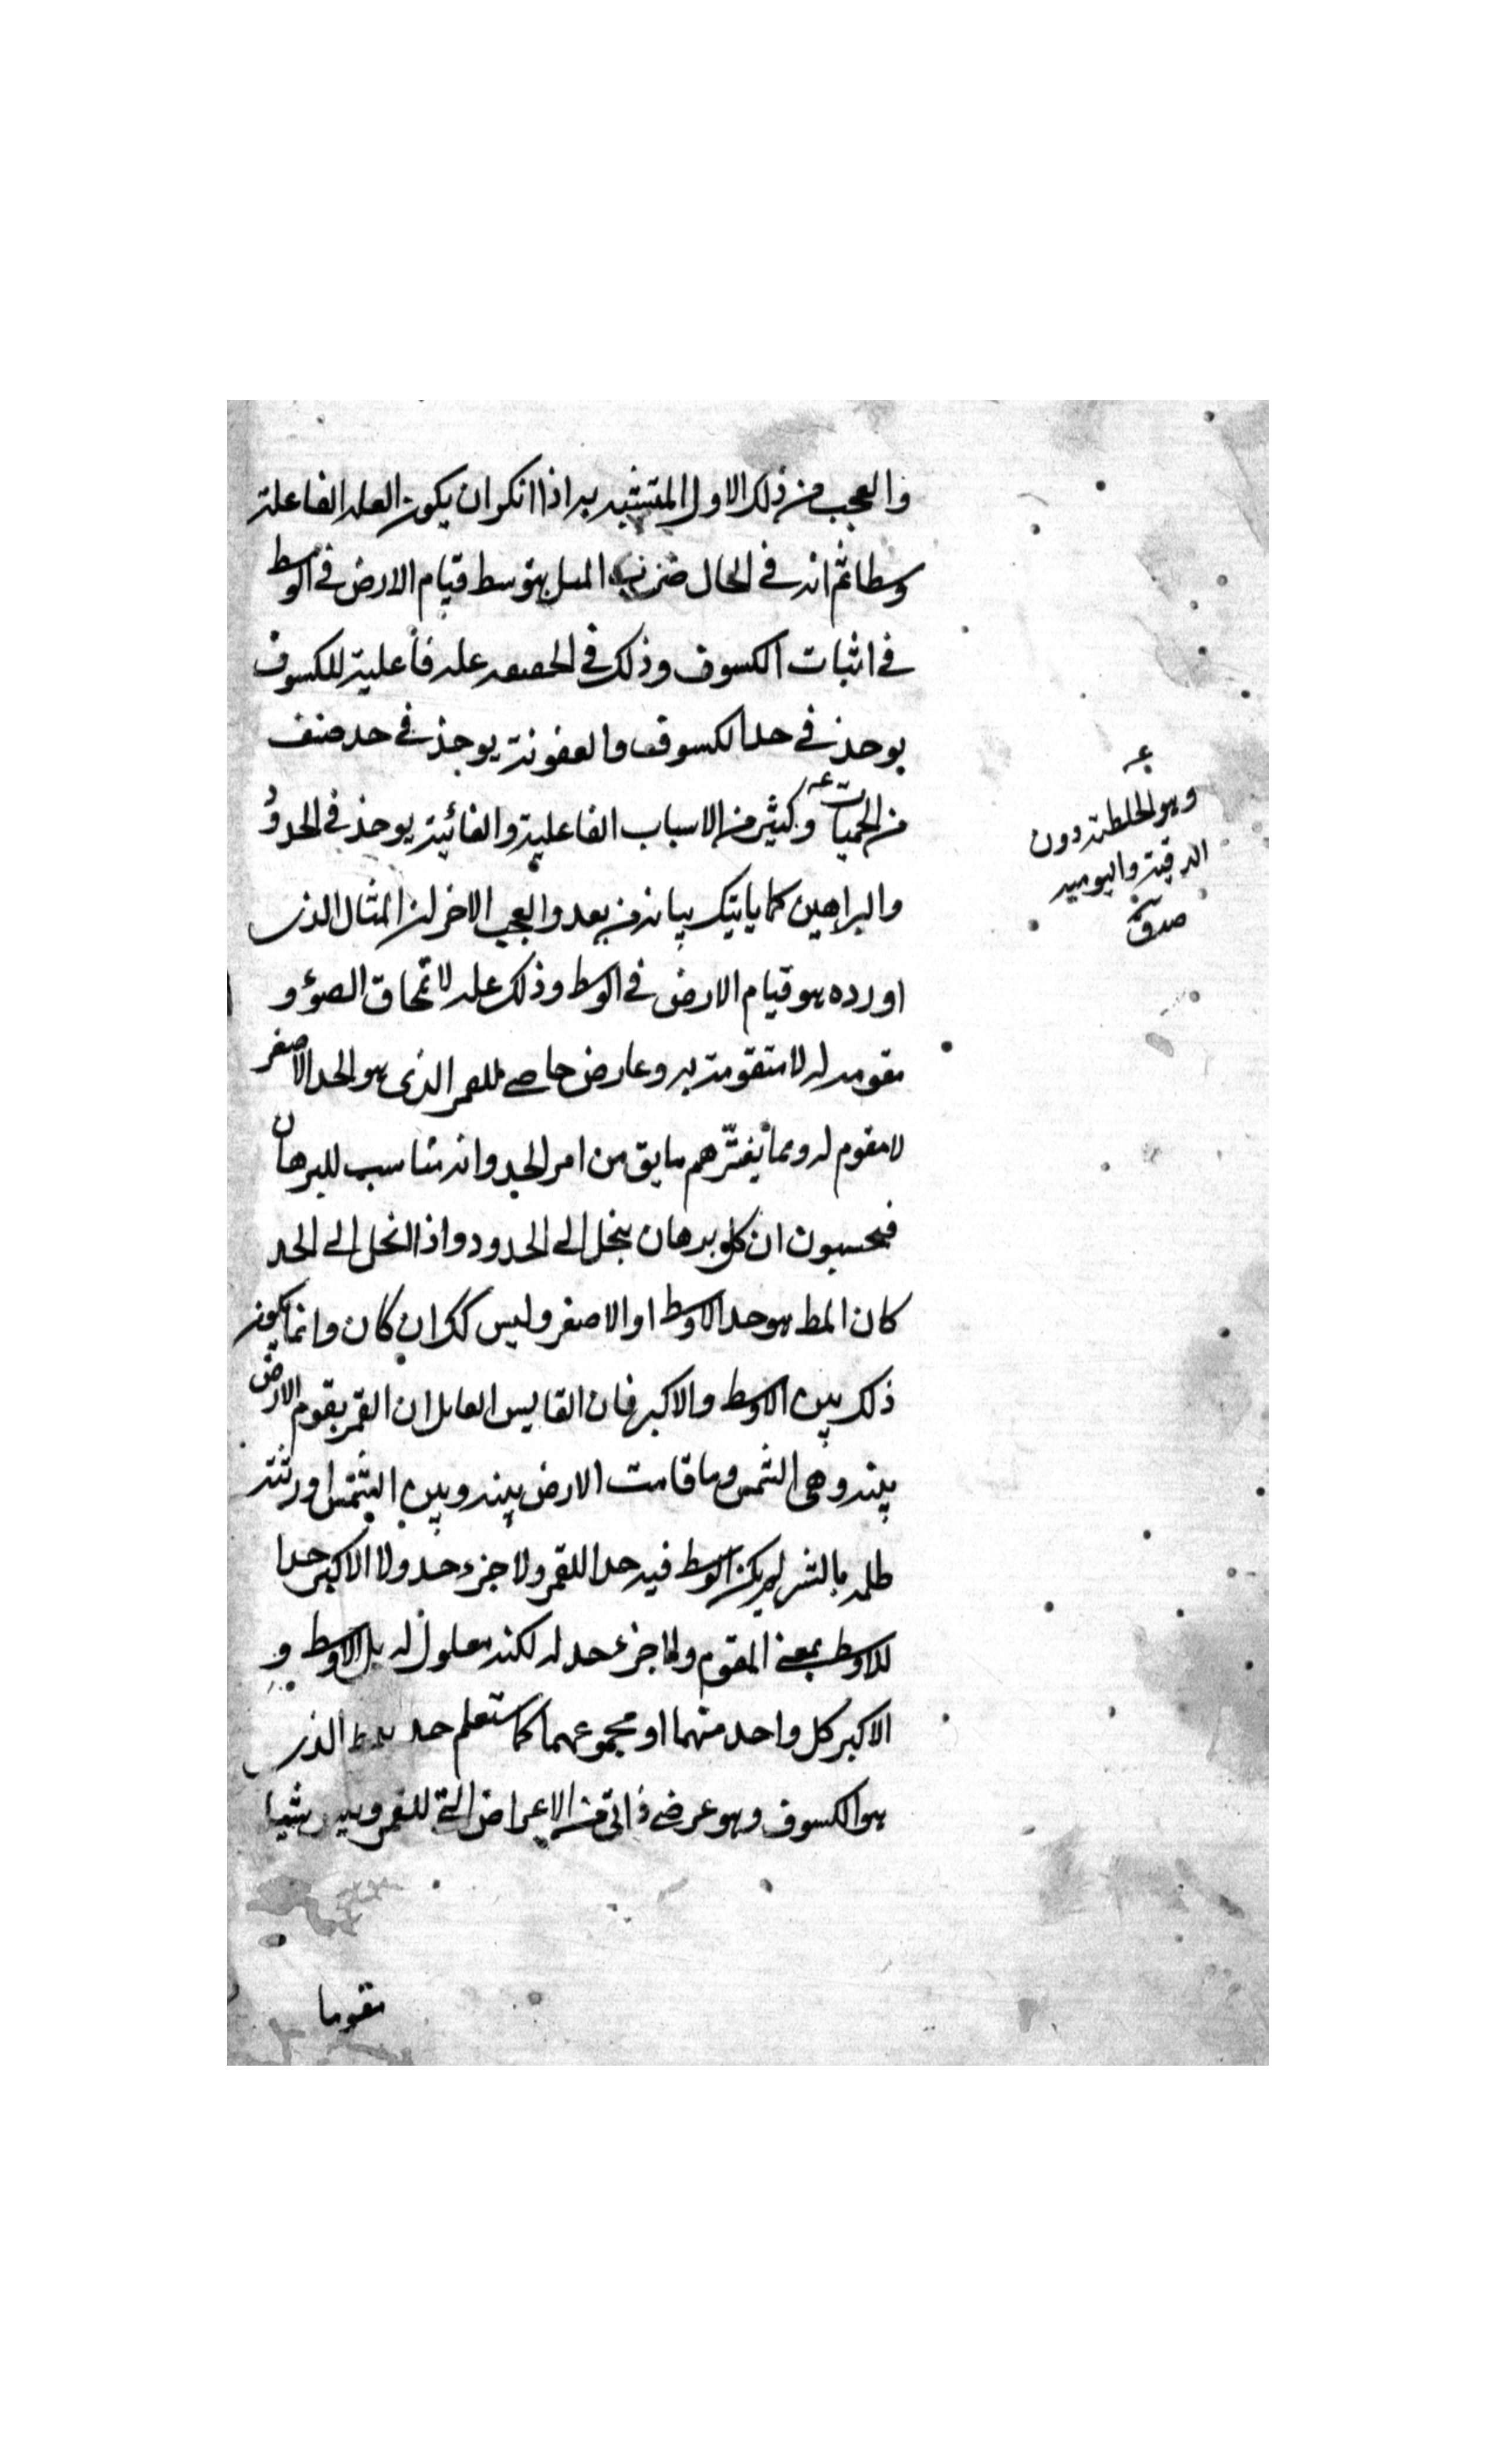 والعجب من ذلك الاول المتشبه به اذا انكر ان يكون العله الفاعلة
وسطا ثم انه في الحال ضرب المثل بتوسط قيام الارض في الوسط
في اثبات الكسوف وذلك في الحقيقه عله فاعلية للكسوف
يوخذ في حد الكسوف والعفونة يوخذ في حد صنف
من الحميات وكثير من الاسباب الفاعلية والغائية يوخذ في الحدود
والبراهين كما ياتيك بيانه من بعد والعجب الاخر ان المثال الذى
اورده هو قيام الارض في الوسط وذلك عله لانمحاق الضوء و
مقومه له لا متقومة به وعارض خاص للقمر الذى هو الحد الاصغر
لا مقوم له ومما يغترهم ما يق من امر الحد وانه مناسب للبرهان
فيحسبون ان كل برهان ينحل الى الحدود واذا انحل الى الحد
كان المط هو حد الاوسط او الاصغر وليس كك ان كان وانما يكون
ذلك بين الاوسط والاكبر فان القايس القايل ان القمر يقوم الارض
بينه وهى الشمس وما قامت الارض بينه وبين الشمس اورثته
ظلمه بالستر لم يكن الاوسط فيه حدا للقمر ولا جزء حد ولا الاكبر حدا
للاوسط بمعنى المقوم ولا جزء حد له لكنه معلول له بل الاوسط و
الاكبر كل واحد منهما او مجموعهما كما ستعلم حد الذى
هو الكسوف وهو عرض ذاتى من الاعراض التى للقمر وليس شيئا
مقوما
عه
وهو الخلطة دون
الدقية واليوميه